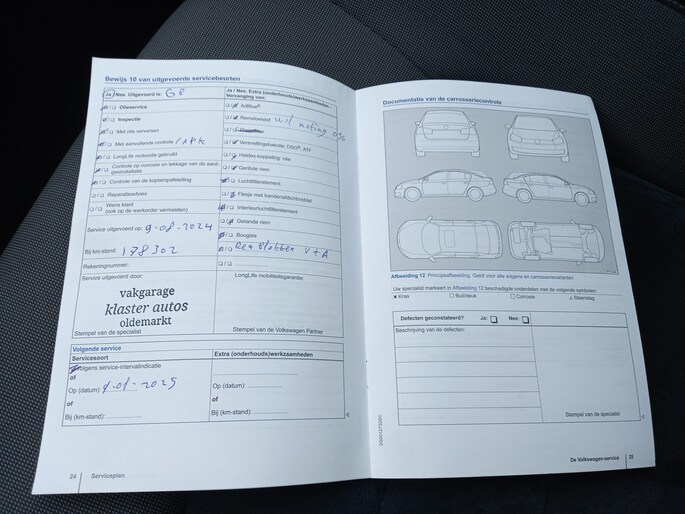 Bewijs 10 van uitgevoerde servicebeurten
Ja / Nee. Uitgevoerd is: GB
Olieservice
Inspectie
Met olie verversen
Met aanvullende controle / APK
LongLife motorolie gebruikt
Controle op corrosie en lekkage van de aard-
gasinstallatie
Controle van de koplampafstelling
Reparatieadvies
Wens klant
(ook op de werkorder vermelden)
Service uitgevoerd op: 9-08-2024
Bij km-stand: 178302
Rekeningnummer:
Service uitgevoerd door:
vakgarage
klaster autos
oldemarkt
Stempel van de specialist
Ja / Nee. Extra (onderhouds)werkzaamheden.
Vervanging van:
AdBlue®
Remvloeistof wisl meting 0%
Versnellingsbakolie: DSG®, ATF
Haldex-koppeling olie
Geribde riem
Luchtfilterelement
Flesje met bandenafdichtmiddel
Interieurluchtfilterelement
Getande riem
Bougies
Remblokken V+A
LongLife mobiliteitsgarantie:
Stempel van de Volkswagen Partner
Volgende service
Servicesoort
Volgens service-intervalindicatie
of
Op (datum): 9-08-2025
of
Bij (km-stand):
Extra (onderhouds)werkzaamheden
Op (datum):
of
Bij (km-stand):
24 Serviceplan
Documentatie van de carrosseriecontrole
Afbeelding 12 Principeafbeelding. Geldt voor alle wagens en carrosserievarianten
Uw specialist markeert in Afbeelding 12 beschadigde onderdelen met de volgende symbolen:
× Kras
○ Buil/deuk
□ Corrosie
⚠ Steenslag
Defecten geconstateerd? Ja: Nee:
Beschrijving van de defecten:
Stempel van de specialist
De Volkswagen-service 25